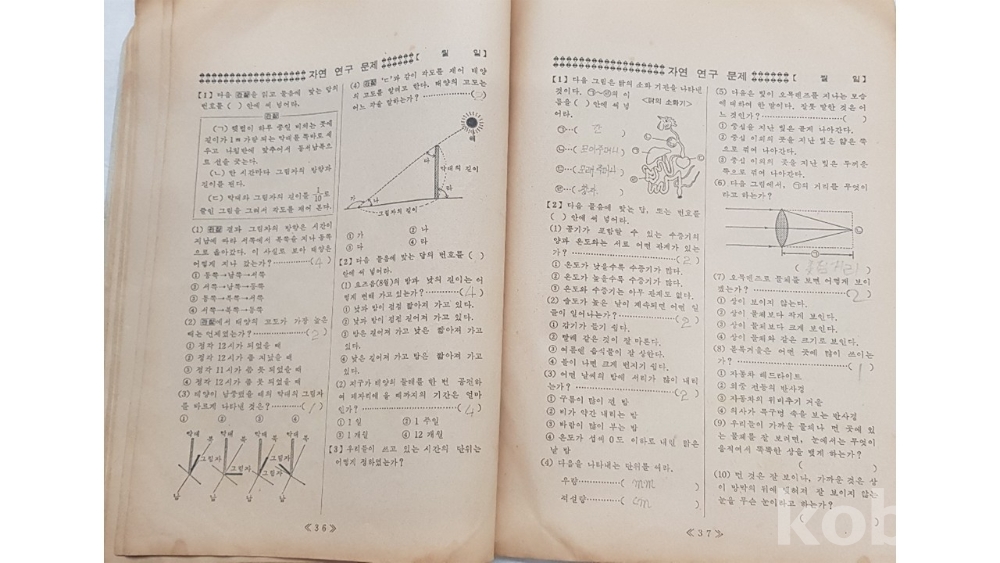 자연 연구 문제 【 월 일】
【1】 다음 글을 읽고 물음에 맞는 답의
번호를 ( ) 안에 써 넣어라.
(ㄱ) 햇볕이 하루 종일 비치는 곳에
길이가 1m 가량 되는 막대를 똑바로 세
우고 나침반에 맞추어서 동서남북으
로 선을 긋는다.
(ㄴ) 한 시간마다 그림자의 방향과
길이를 잰다.
(ㄷ) 막대와 그림자의 길이를 1/10 로
줄인 그림을 그려서 각도를 재어 본다.
(1) 결과 그림자의 방향은 시간이
지남에 따라 서쪽에서 북쪽을 지나 동쪽
으로 옮아갔다. 이 사실로 보아 태양은
어떻게 지나 갔는가?(4)
① 동쪽→남쪽→서쪽
② 서쪽→남쪽→동쪽
③ 동쪽→북쪽→서쪽
④ 서쪽→북쪽→동쪽
(2) 에서 태양의 고도가 가장 높은
때는 언제였는가?(2)
① 정각 12시가 되었을 때
② 정각 12시가 좀 지났을 때
③ 정각 11시가 좀 못 되었을 때
④ 정각 12시가 좀 못 되었을 때
(3) 태양이 남중했을 때의 막대의 그림자
를 바르게 나타낸 것은?(1)
① ② ③ ④
막대 북 막대 북 막대 북 막대 북
그림자 그림자 그림자 그림자
남 남 남 남
(4) "ㄷ"과 같이 각도를 재어 태양
의 고도를 알려고 한다. 태양의 고도는
어느 각을 말하는가?
해
다
막대의 길이
가 나 라
그림자의 길이
① 가 ② 나
③ 다 ④ 라
【2】 다음 물음에 맞는 답의 번호를 ( )
안에 써 넣어라.
(1) 요즈음(8월)의 밤과 낮의 길이는 어
떻게 변해 가고 있는가?(4)
① 낮과 밤이 점점 짧아져 가고 있다.
② 낮과 밤이 점점 길어져 가고 있다.
③ 밤은 길어져 가고 낮은 짧아져 가고
있다.
④ 낮은 길어져 가고 밤은 짧아져 가고
있다.
(2) 지구가 태양의 둘레를 한 번 공전하
여 제자리에 올 때까지의 기간은 얼마
인가?(4)
① 1일 ② 1주일
③ 1개월 ④ 12개월
【3】 우리들이 쓰고 있는 시간의 단위는
어떻게 정하였는가?
≪36≫
자연 연구 문제 【 월 일】
【1】 다음 그림은 닭의 소화 기관을 나타낸
것이다. ㉠~㉣의 이
름을 ( ) 안에 써 넣
어라.
<닭의 소화기>
㉠…( 간 )
㉡…( 모이주머니 )
㉢…( 모래주머니 )
㉣…( 콩팥 )
【2】 다음 물음에 맞는 답, 또는 번호를
( ) 안에 써 넣어라.
(1) 공기가 포함할 수 있는 수증기의
양과 온도와는 서로 어떤 관계가 있는
가?(2)
① 온도가 낮을수록 수증기가 많다.
② 온도가 높을수록 수증기가 많다.
③ 온도와 수증기는 아무 관계도 없다.
(2) 습도가 높은 날이 계속되면 어떤 일
들이 일어나는가?(3)
① 감기가 들기 쉽다.
② 빨래 같은 것이 잘 마른다.
③ 여름엔 음식물이 잘 상한다.
④ 불이 나면 크게 번지기 쉽다.
(3) 어떤 날씨의 밤에 서리가 많이 내리
는가?(2)
① 구름이 많이 낀 밤
② 비가 약간 내리는 밤
③ 바람이 많이 부는 밤
④ 온도가 섭씨 0도 이하로 내린 맑은
날 밤
(4) 다음을 나타내는 단위를 써라.
우량( mm )
적설량( cm )
(5) 다음은 빛이 오목렌즈를 지나는 모습
에 대하여 한 말이다. 잘못 말한 것은 어
느 것인가?( )
① 중심을 지난 빛은 곧게 나아간다.
② 중심 이외의 곳을 지난 빛은 얇은 쪽
으로 꺾여 나아간다.
③ 중심 이외의 곳을 지난 빛은 두꺼운
쪽으로 꺾여 나아간다.
(6) 다음 그림에서, ㉠의 거리를 무엇이
라고 하는가?
㉡
㉠
( 초점거리 )
(7) 오목렌즈로 물체를 보면 어떻게 보이
겠는가?(2)
① 상이 보이지 않는다.
② 상이 물체보다 작게 보인다.
③ 상이 물체보다 크게 보인다.
④ 상이 물체와 같은 크기로 보인다.
(8) 볼록거울은 어떤 곳에 많이 쓰이는
가?(1)
① 자동차 헤드라이트
② 회중 전등의 반사경
③ 자동차의 뒤비추기 거울
④ 의사가 목구멍 속을 보는 반사경
(9) 우리들이 가까운 물체나 먼 곳에 있
는 물체를 잘 보려면, 눈에서는 무엇이
움직여서 똑똑한 상을 맺게 하는가?
( )
(10) 먼 것은 잘 보이나, 가까운 것은 상
이 망막의 뒤에 맺혀져 잘 보이지 않는
눈을 무슨 눈이라고 하는가?
( )
≪37≫
kob